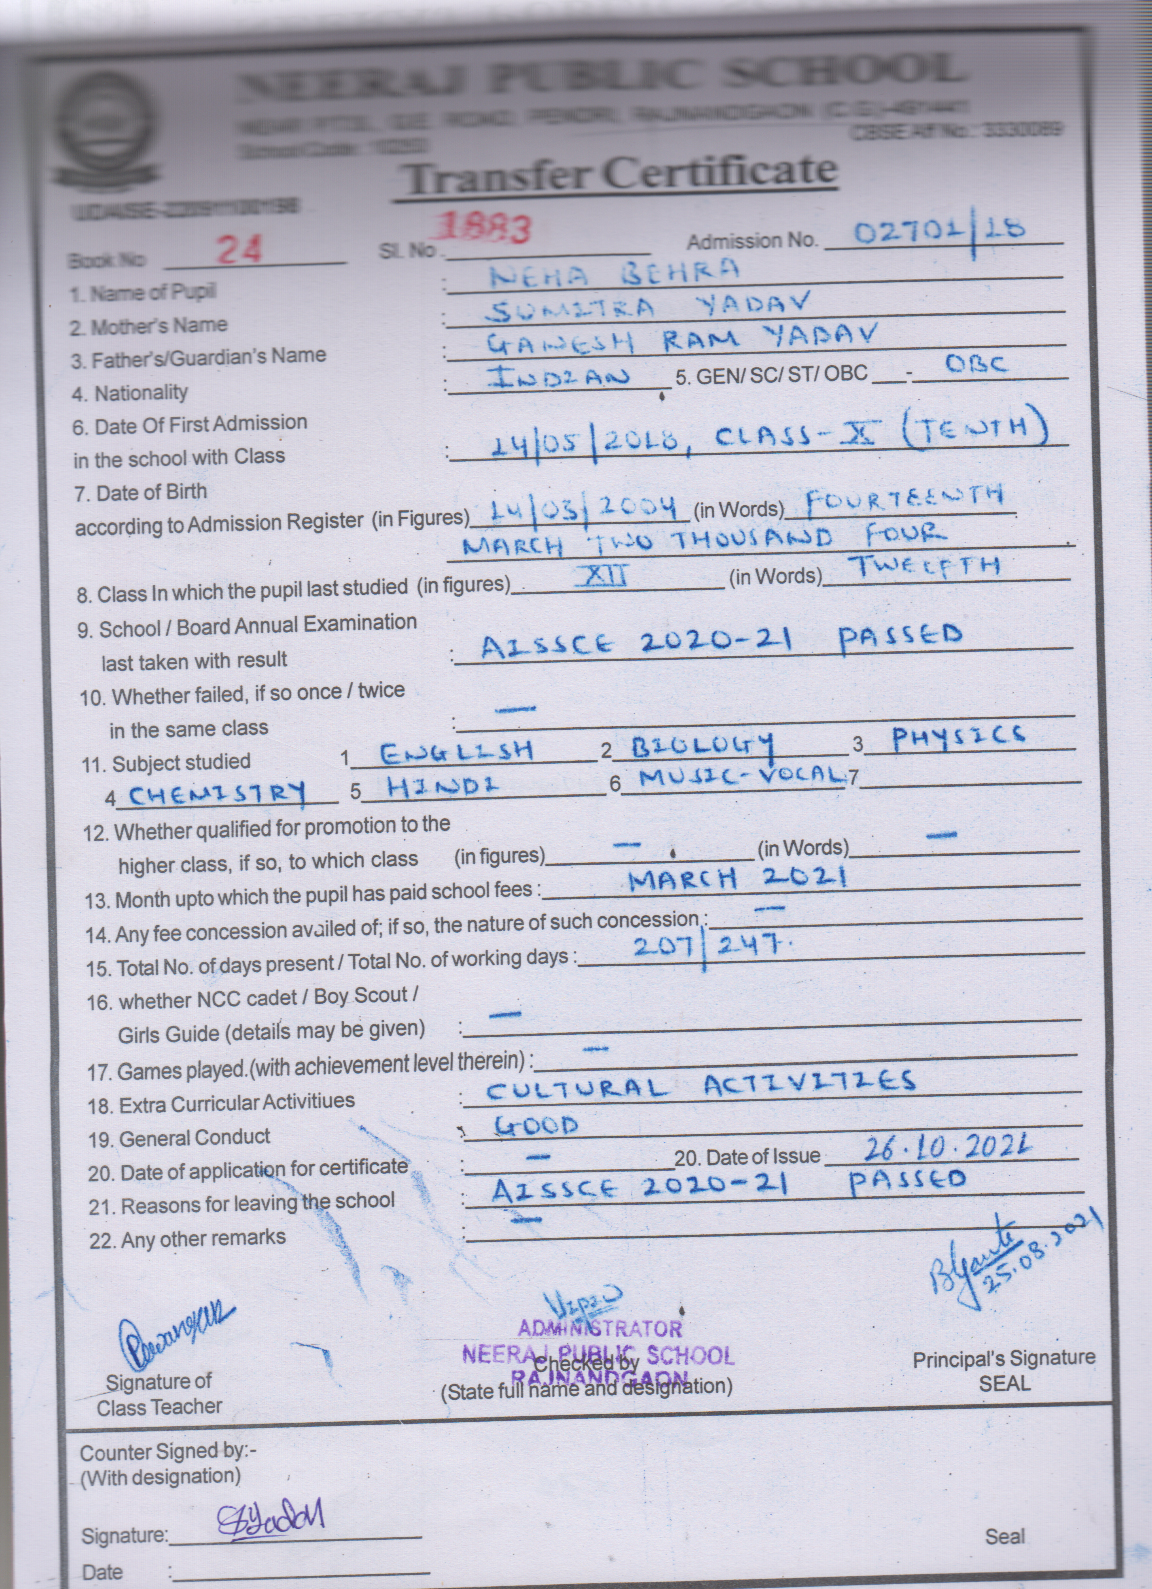 NEERAJ PUBLIC SCHOOL
ROAD, PENDRI, RAJNANDGAON (C.G.)-491441
School Code: CBSE Aff No.: 3330089
Transfer Certificate
Book No 24 Sl. No. 1883 Admission No. 02701/18
1. Name of Pupil : NEHA BEHRA
2. Mother's Name : SUMITRA YADAV
3. Father's/Guardian's Name : GANESH RAM YADAV
4. Nationality : INDIAN 5. GEN/ SC/ ST/ OBC - OBC
6. Date Of First Admission
in the school with Class : 14/05/2018, CLASS-X (TENTH)
7. Date of Birth
according to Admission Register (in Figures) 14/03/2004 (in Words) FOURTEENTH
MARCH TWO THOUSAND FOUR
8. Class In which the pupil last studied (in figures) XII (in Words) TWELFTH
9. School / Board Annual Examination
last taken with result : AISSCE 2020-21 PASSED
10. Whether failed, if so once / twice
in the same class : —
11. Subject studied 1 ENGLISH 2 BIOLOGY 3 PHYSICS
4 CHEMISTRY 5 HINDI 6 MUSIC-VOCAL 7
12. Whether qualified for promotion to the
higher class, if so, to which class (in figures) — (in Words) —
13. Month upto which the pupil has paid school fees : MARCH 2021
14. Any fee concession availed of; if so, the nature of such concession : —
15. Total No. of days present / Total No. of working days : 207/247.
16. whether NCC cadet / Boy Scout /
Girls Guide (details may be given) : —
17. Games played.(with achievement level therein) : —
18. Extra Curricular Activitiues : CULTURAL ACTIVITIES
19. General Conduct : GOOD
20. Date of application for certificate : — 20. Date of Issue 26.10.2021
21. Reasons for leaving the school : AISSCE 2020-21 PASSED
22. Any other remarks : —
25.08.2021
Vipin
ADMINISTRATOR
NEERAJ PUBLIC SCHOOL
RAJNANDGAON
Signature of
Class Teacher
Checked by
(State full name and designation)
Principal's Signature
SEAL
Counter Signed by:-
(With designation)
Signature: Yadav
Seal
Date :